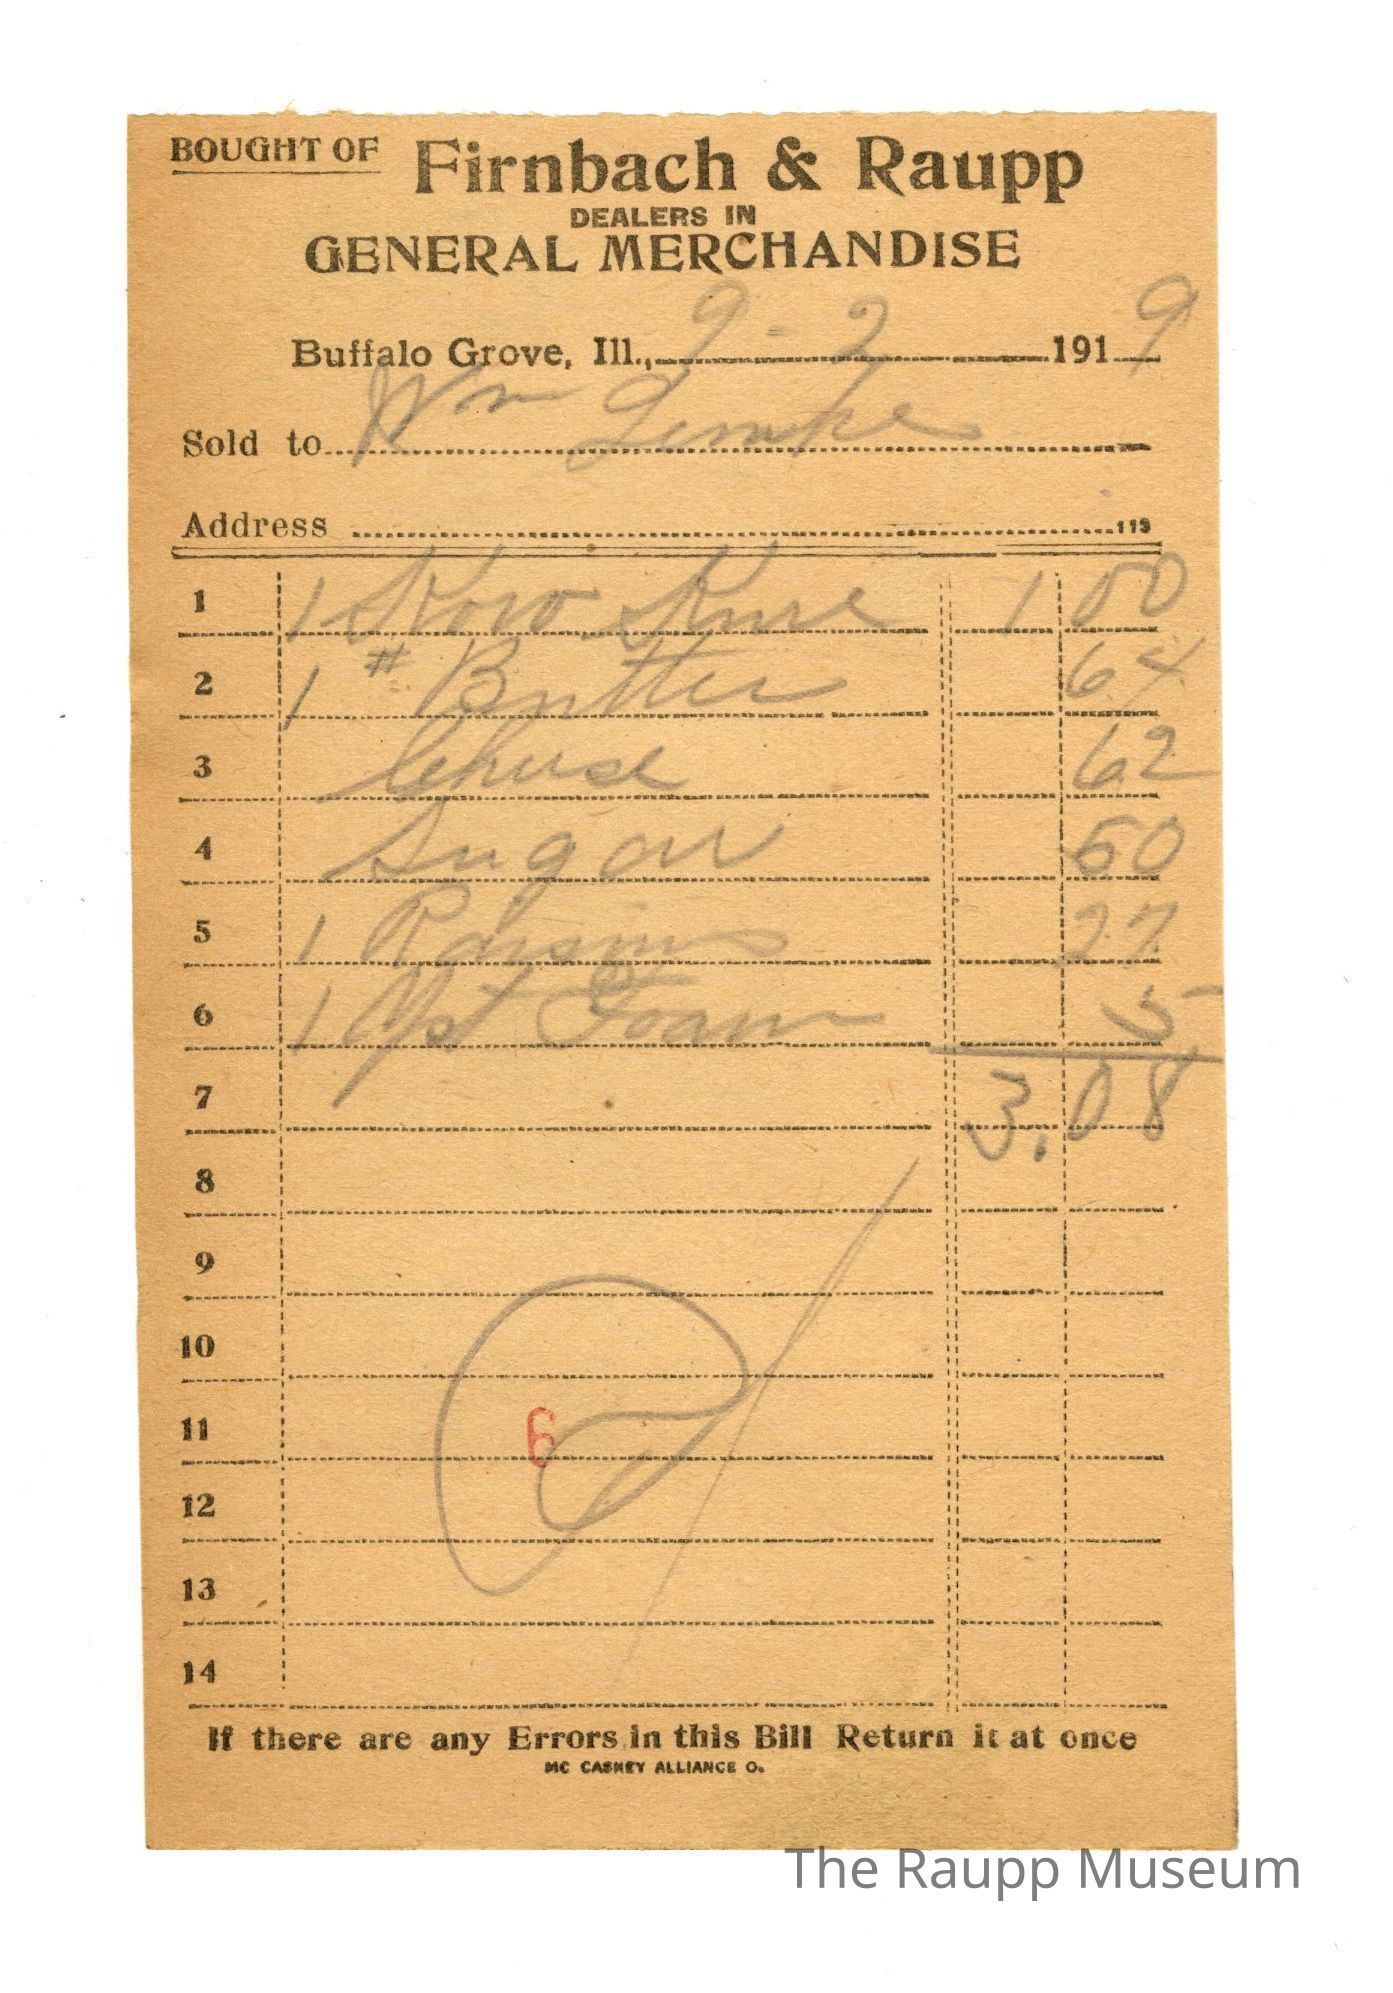 BOUGHT OF Firnbach & Raupp
DEALERS IN
GENERAL MERCHANDISE
Buffalo Grove, Ill., 9-2 1919
Sold to Wm Lemke
Address 113
1 1 Kow Kure 1 00
2 1 # Butter 64
3 Cheese 62
4 Sugar 50
5 1 Raisins 27
6 1 Yst Foam 5
7 3.08
8
9
10
11 6
12
13
14
If there are any Errors in this Bill Return it at once
MC CASKEY ALLIANCE O.
The Raupp Museum